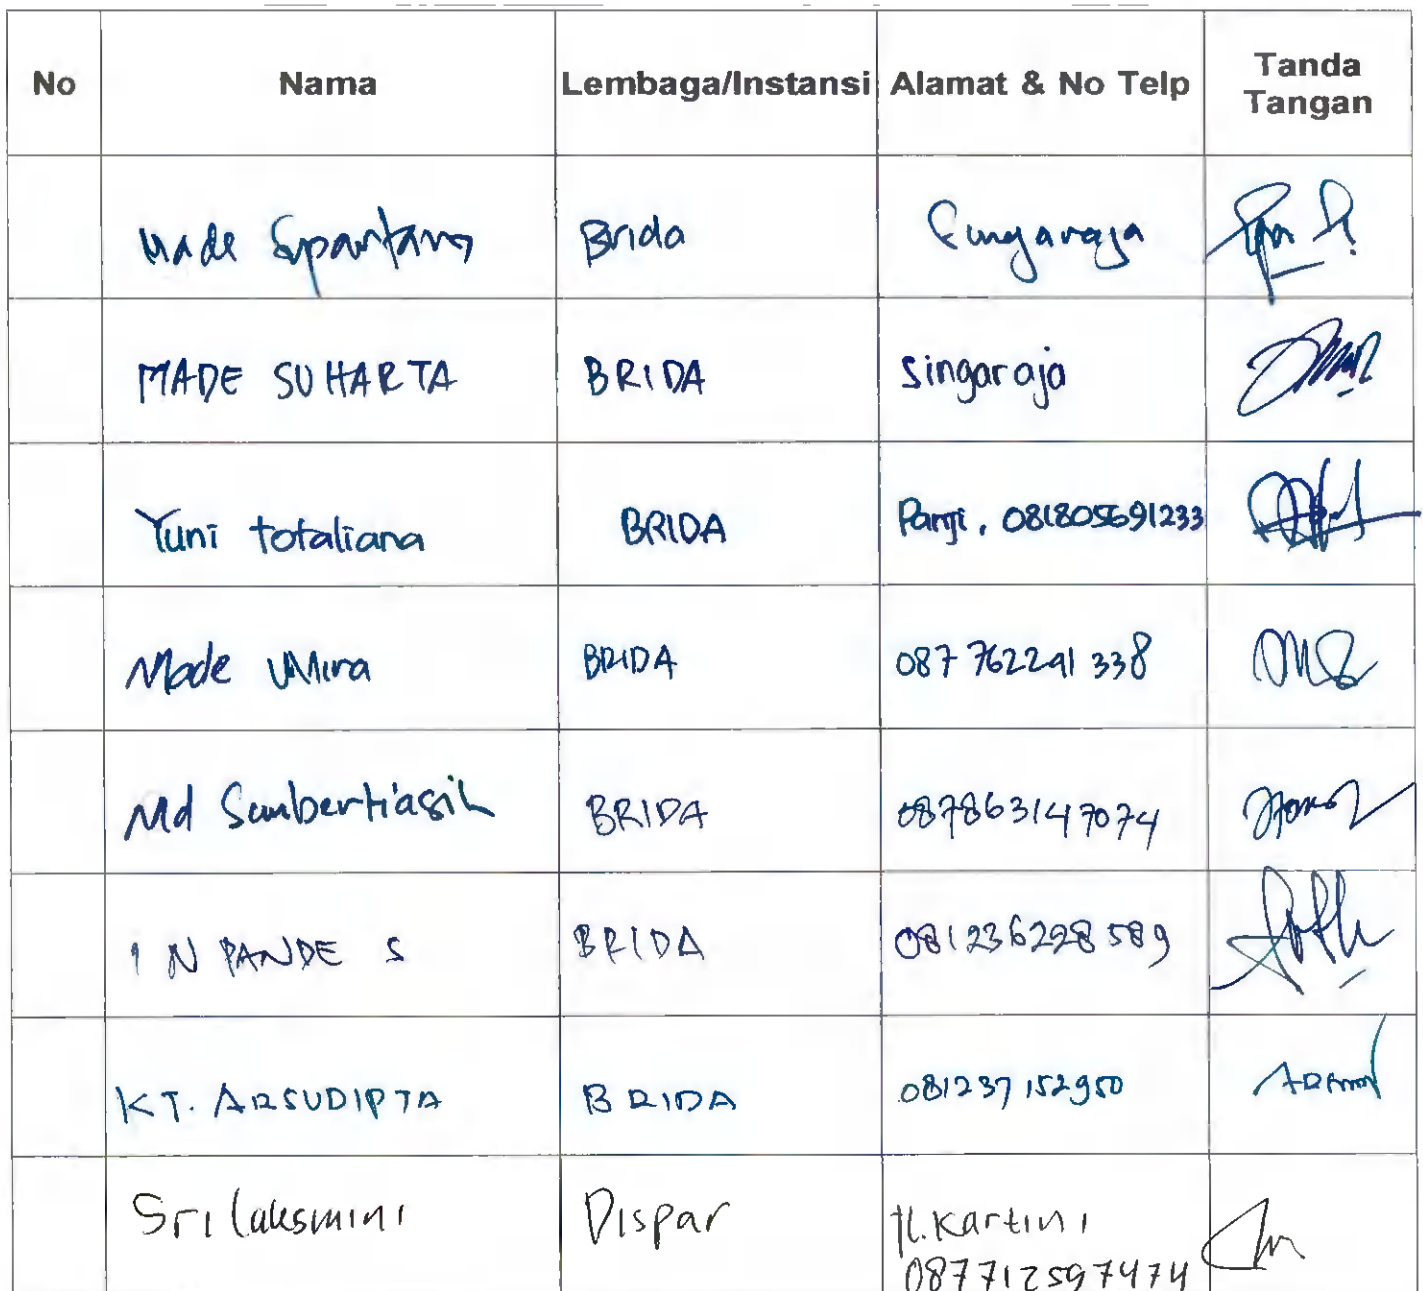 No Nama Lembaga/Instansi Alamat & No Telp Tanda
Tangan
Made Brida
MADE SUHARTA BRIDA Singaraja
Yuni totaliana BRIDA Panji, 081805691233
Made BRIDA 087 762241 338
Md Sumbertiasih BRIDA 087863147074
I N PANDE S BRIDA 081236228589
KT. ARSUDIPTA BRIDA 081237152950
Sri laksmini Dispar Jl. Kartini
087712597474